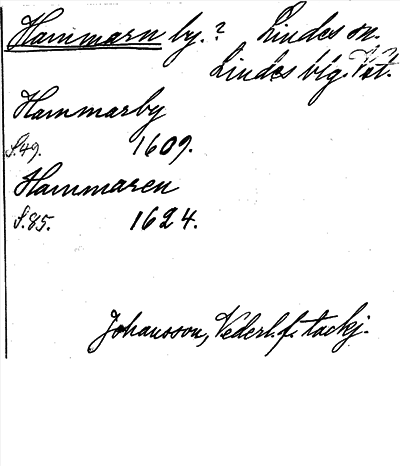 Hammarn by.? Lindes sn.
Lindes blg. Vstm.
Hammarby
S.49. 1609.
Hammaren
S.85. 1624.
Johansson, Vederl. f. tackj.